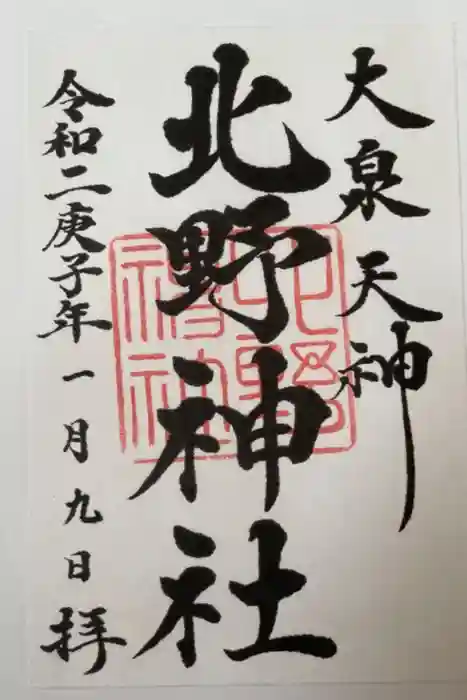 大泉天神
北野神社
北野神社
令和二庚子年一月九日拝